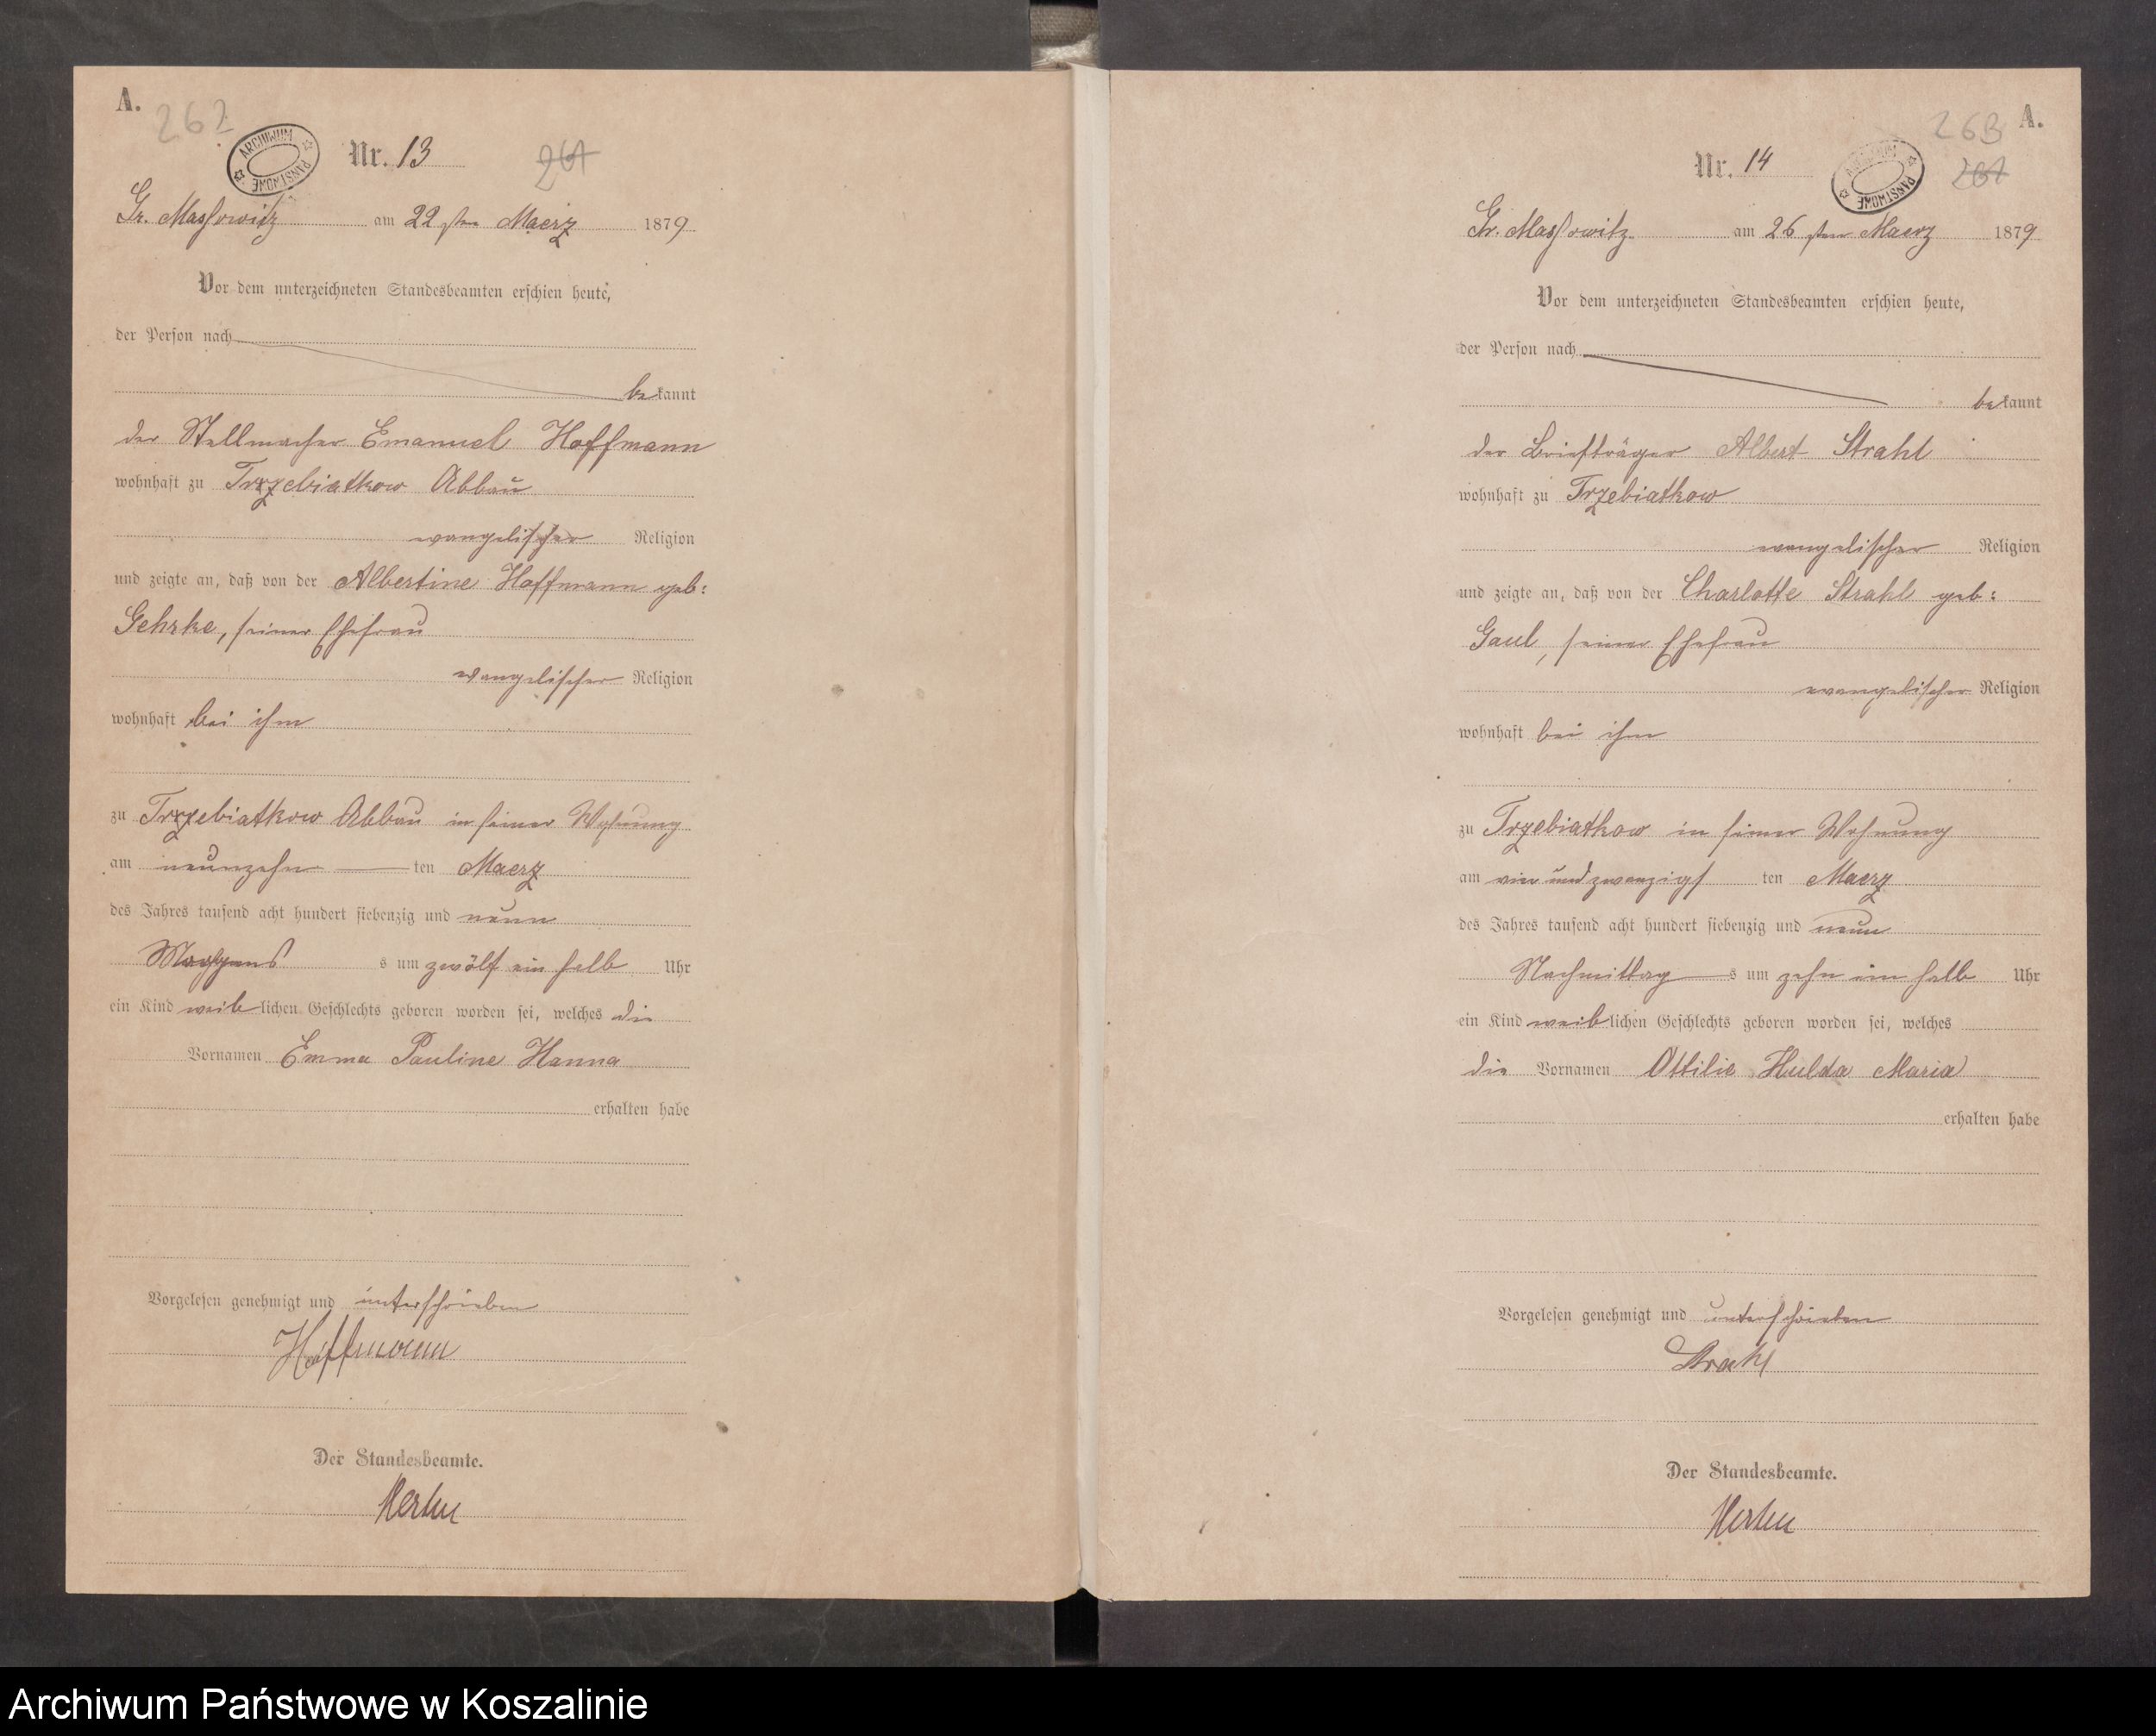 A.
262
ARCHIWUM PAŃSTWOWE
Nr. 13
261
Gr. Massowitz am 22sten Maerz 1879
Vor dem unterzeichneten Standesbeamten erschien heute,
der Person nach
bekannt
der Stellmacher Emanuel Hoffmann
wohnhaft zu Trzebiatkow Abbau
evangelischer Religion
und zeigte an, daß von der Albertine Hoffmann geb:
Gehrke, seiner Ehefrau
evangelischer Religion
wohnhaft bei ihm
zu Trzebiatkow Abbau in seiner Wohnung
am neunzehn ten Maerz
des Jahres tausend acht hundert siebenzig und neun
Morgens s um zwölf ein halb Uhr
ein Kind weiblichen Geschlechts geboren worden sei, welches die
Vornamen Emma Pauline Hanna
erhalten habe
Vorgelesen genehmigt und unterschrieben
Hoffmann
Der Standesbeamte.
A.
263
Nr. 14
ARCHIWUM PAŃSTWOWE
262
Gr. Massowitz am 26sten Maerz 1879
Vor dem unterzeichneten Standesbeamten erschien heute,
der Person nach
bekannt
der Briefträger Albert Strahl
wohnhaft zu Trzebiatkow
evangelischer Religion
und zeigte an, daß von der Charlotte Strahl geb:
Gaul, seiner Ehefrau
evangelischer Religion
wohnhaft bei ihm
zu Trzebiatkow in seiner Wohnung
am vier und zwanzigs ten Maerz
des Jahres tausend acht hundert siebenzig und neun
Nachmittag s um zehn ein halb Uhr
ein Kind weiblichen Geschlechts geboren worden sei, welches
die Vornamen Ottilie Hulda Maria
erhalten habe
Vorgelesen genehmigt und unterschrieben
Strahl
Der Standesbeamte.
Archiwum Państwowe w Koszalinie